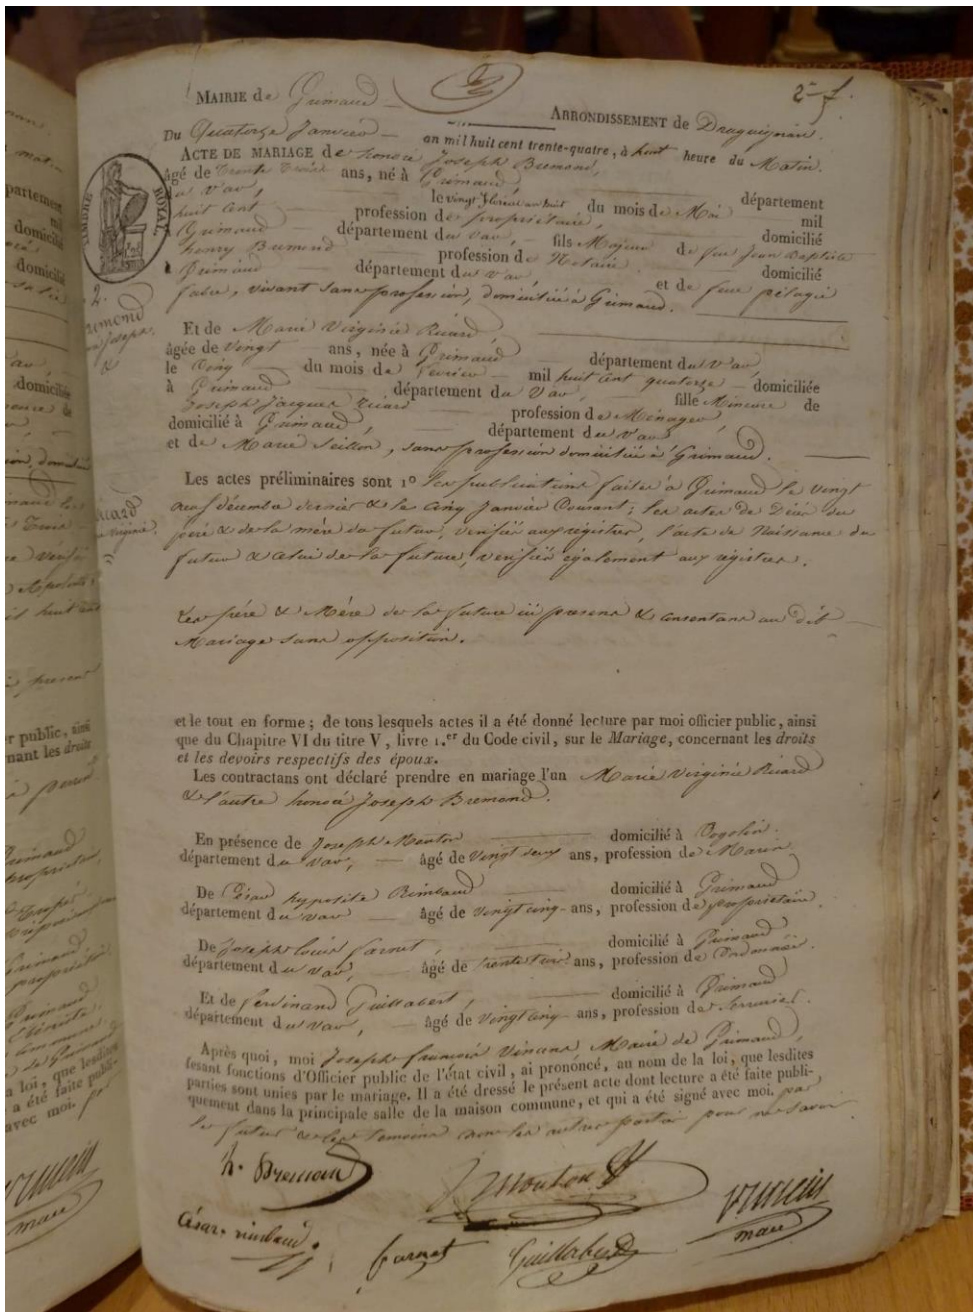 2e f.
MAIRIE de Grimaud
ARRONDISSEMENT de Draguignan.
Du Quatorze Janvier an mil huit cent trente-quatre, à huit heure du Matin.
ACTE DE MARIAGE de honoré Joseph Bremond,
âgé de trente trois ans, né à Grimaud, département
du Var, le vingt floréal an huit du mois de Mai mil
huit cent profession de propriétaire, domicilié
Grimaud département du Var, fils Majeur de feu Jean Baptiste
henry Bremond profession de Notaire domicilié
à Grimaud département du Var et de feue pélagie
fabre, vivant sans profession, domiciliée à Grimaud.
TIMBRE ROYAL
2.
Bremond
Joseph.
&
Et de Marie Virginie Ricard,
âgée de vingt ans, née à Grimaud département du Var,
le Cinq du mois de février mil huit cent quatorze domiciliée
à Grimaud département du Var, fille Mineure de
Joseph Jacques Ricard profession de Ménager,
domicilié à Grimaud, département du Var
et de Marie Seillon, sans profession domiciliée à Grimaud.
Ricard
Virginie.
Les actes préliminaires sont 1° Les publications faites à Grimaud le vingt
neuf décembre dernier & le cinq Janvier Courant; les actes de Décès du
père & de la mère du futur, vérifiés aux registres, l'acte de Naissance du
futur & celui de la future, vérifiés également aux registres.
Les père & Mère de la future ici présens & consentans au dit
Mariage sans opposition.
et le tout en forme ; de tous lesquels actes il a été donné lecture par moi officier public, ainsi
que du Chapitre VI du titre V, livre 1.er du Code civil, sur le Mariage, concernant les droits
et les devoirs respectifs des époux.
Les contractans ont déclaré prendre en mariage l'un Marie Virginie Ricard
& l'autre honoré Joseph Bremond.
En présence de Joseph Mouton domicilié à Cogolin
département du Var, âgé de vingt deux ans, profession de Marin.
De César hyppolite Rimbaud domicilié à Grimaud
département du Var âgé de vingt cinq ans, profession de propriétaire.
De Joseph Louis farnet, domicilié à Grimaud
département du Var, âgé de trente trois ans, profession de Cordonnier.
Et de Ferdinand Guillabert, domicilié à Grimaud
département du Var, âgé de vingt cinq ans, profession de Serrurier.
Après quoi, moi Joseph françois Vincens Maire de Grimaud,
fesant fonctions d'Officier public de l'état civil, ai prononcé, au nom de la loi, que lesdites
parties sont unies par le mariage. Il a été dressé le présent acte dont lecture a été faite publi-
quement dans la principale salle de la maison commune, et qui a été signé avec moi. par
le futur & les témoins non les autres parties pour ne savoir
h. Bremond
J Mouton
Vincens
maire
César. rimbaud.
farnet
Guillabert